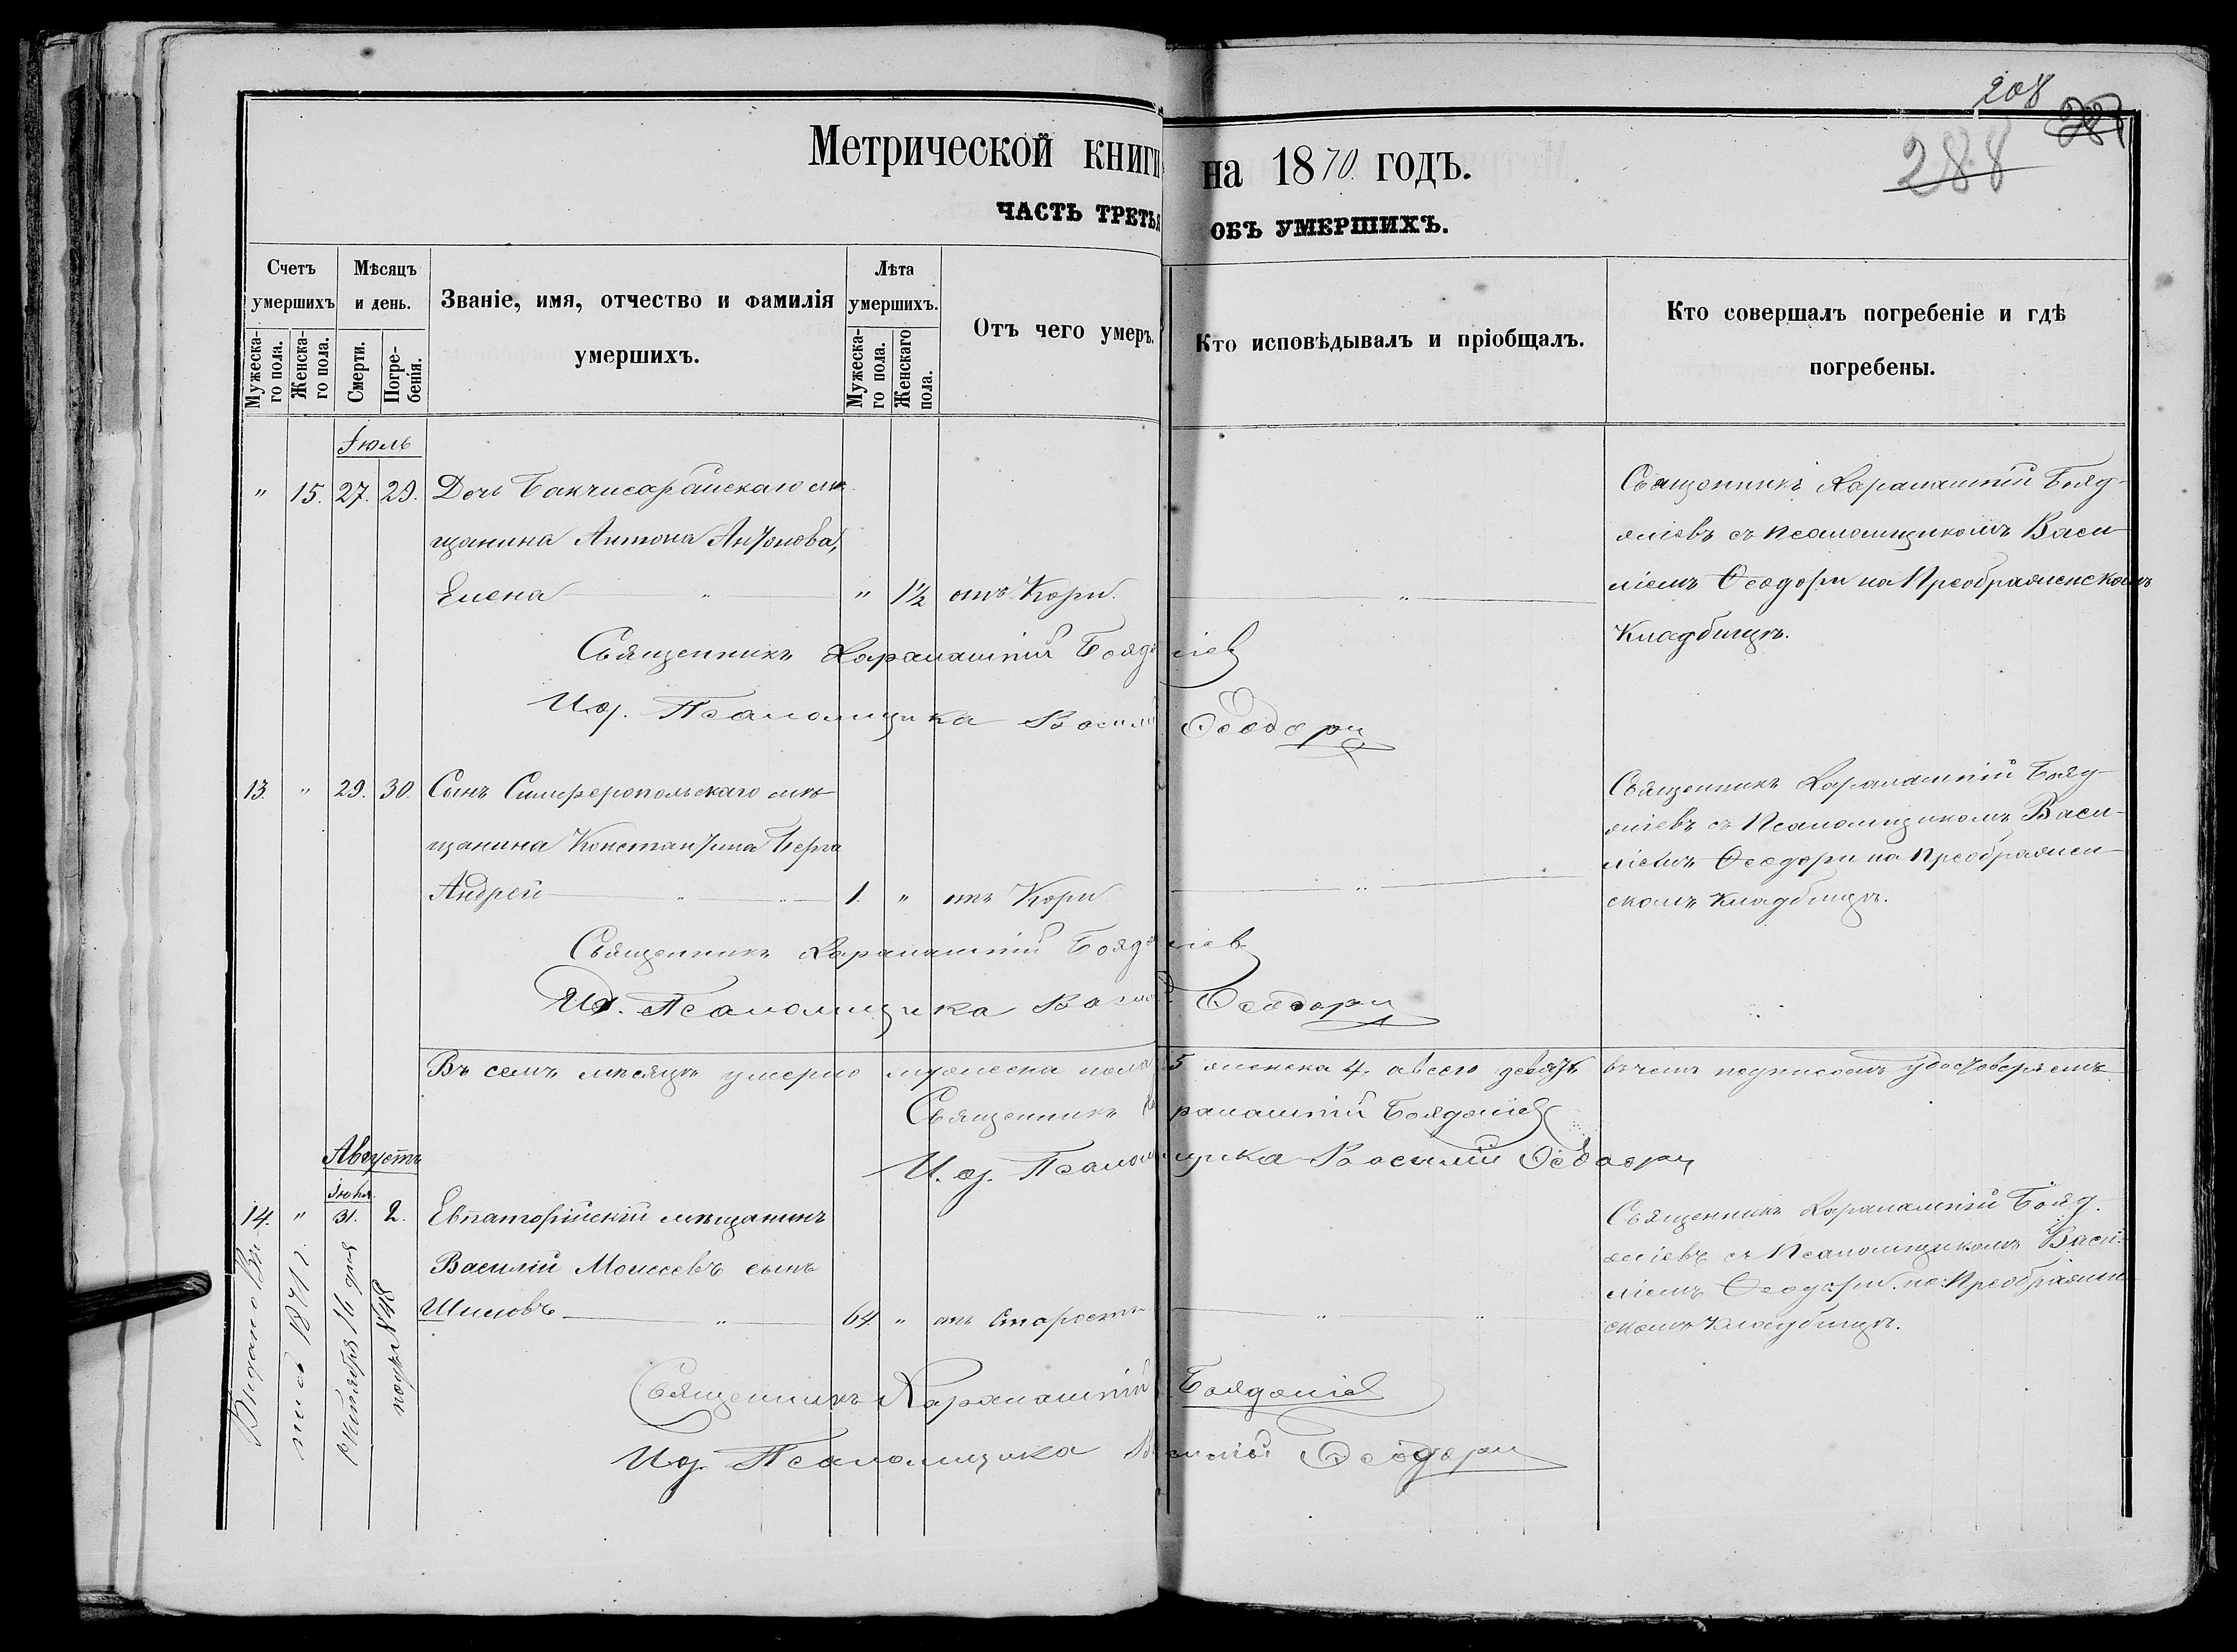 208
287
288
Метрической книги на 1870 годъ.
ЧАСТЬ ТРЕТЬЯ ОБЪ УМЕРШИХЪ.
Счетъ умершихъ
Мужеска-го пола.
Женска-го пола.
Мѣсяцъ и день.
Смерти.
Погре-бенія.
Званіе, имя, отчество и фамилія умершихъ.
Лѣта умершихъ.
Мужеска-го пола.
Женскаго пола.
Отъ чего умеръ.
Кто исповѣдывалъ и пріобщалъ.
Кто совершалъ погребеніе и гдѣ погребены.
Іюль
" 15. 27. 29. Дочь Бакчисарайскаго мѣ-
щанина Антона Антонова,
Елена " " 1½ отъ Кори. "
Священникъ Харалампій Бояд-
жіевъ съ Псаломщикомъ Васи-
ліемъ Ѳеодори на Преображенскомъ
Кладбищѣ.
Священникъ Харалампій Бояджіев
И.д. Псаломщика Василій Ѳеодори
13. " 29. 30. Сынъ Симферопольскаго мѣ-
щанина Константина Верга
Андрей " " 1. " отъ Кори "
Священникъ Харалампій Бояд-
жіевъ съ Псаломщикомъ Васи-
ліемъ Ѳеодори на Преображен-
скомъ Кладбищѣ.
Священникъ Харалампій Бояджіев
И.д. Псаломщика Василій Ѳеодори
Въ семъ мѣсяцѣ умерло мужеска пола 5 женска 4. а всего девять въ чемъ подписомъ удостоверяемъ
Священникъ Харалампій Бояджіев
И.д. Псаломщика Василій Ѳеодори
Августъ
Іюля
14. " 31. 2. Евпаторійскій мѣщанинъ
Василій Моисеевъ сынъ
Шишовъ " 64. " отъ Старости " "
Священникъ Харалампій Бояд-
жіевъ съ Псаломщикомъ Васи-
ліемъ Ѳеодори на Преображен-
скомъ Кладбищѣ.
Выдано
1871 г.
Сентября 16 дня
подъ № 48
Священникъ Харалампій Бояджіев
И.д. Псаломщика Василій Ѳеодори